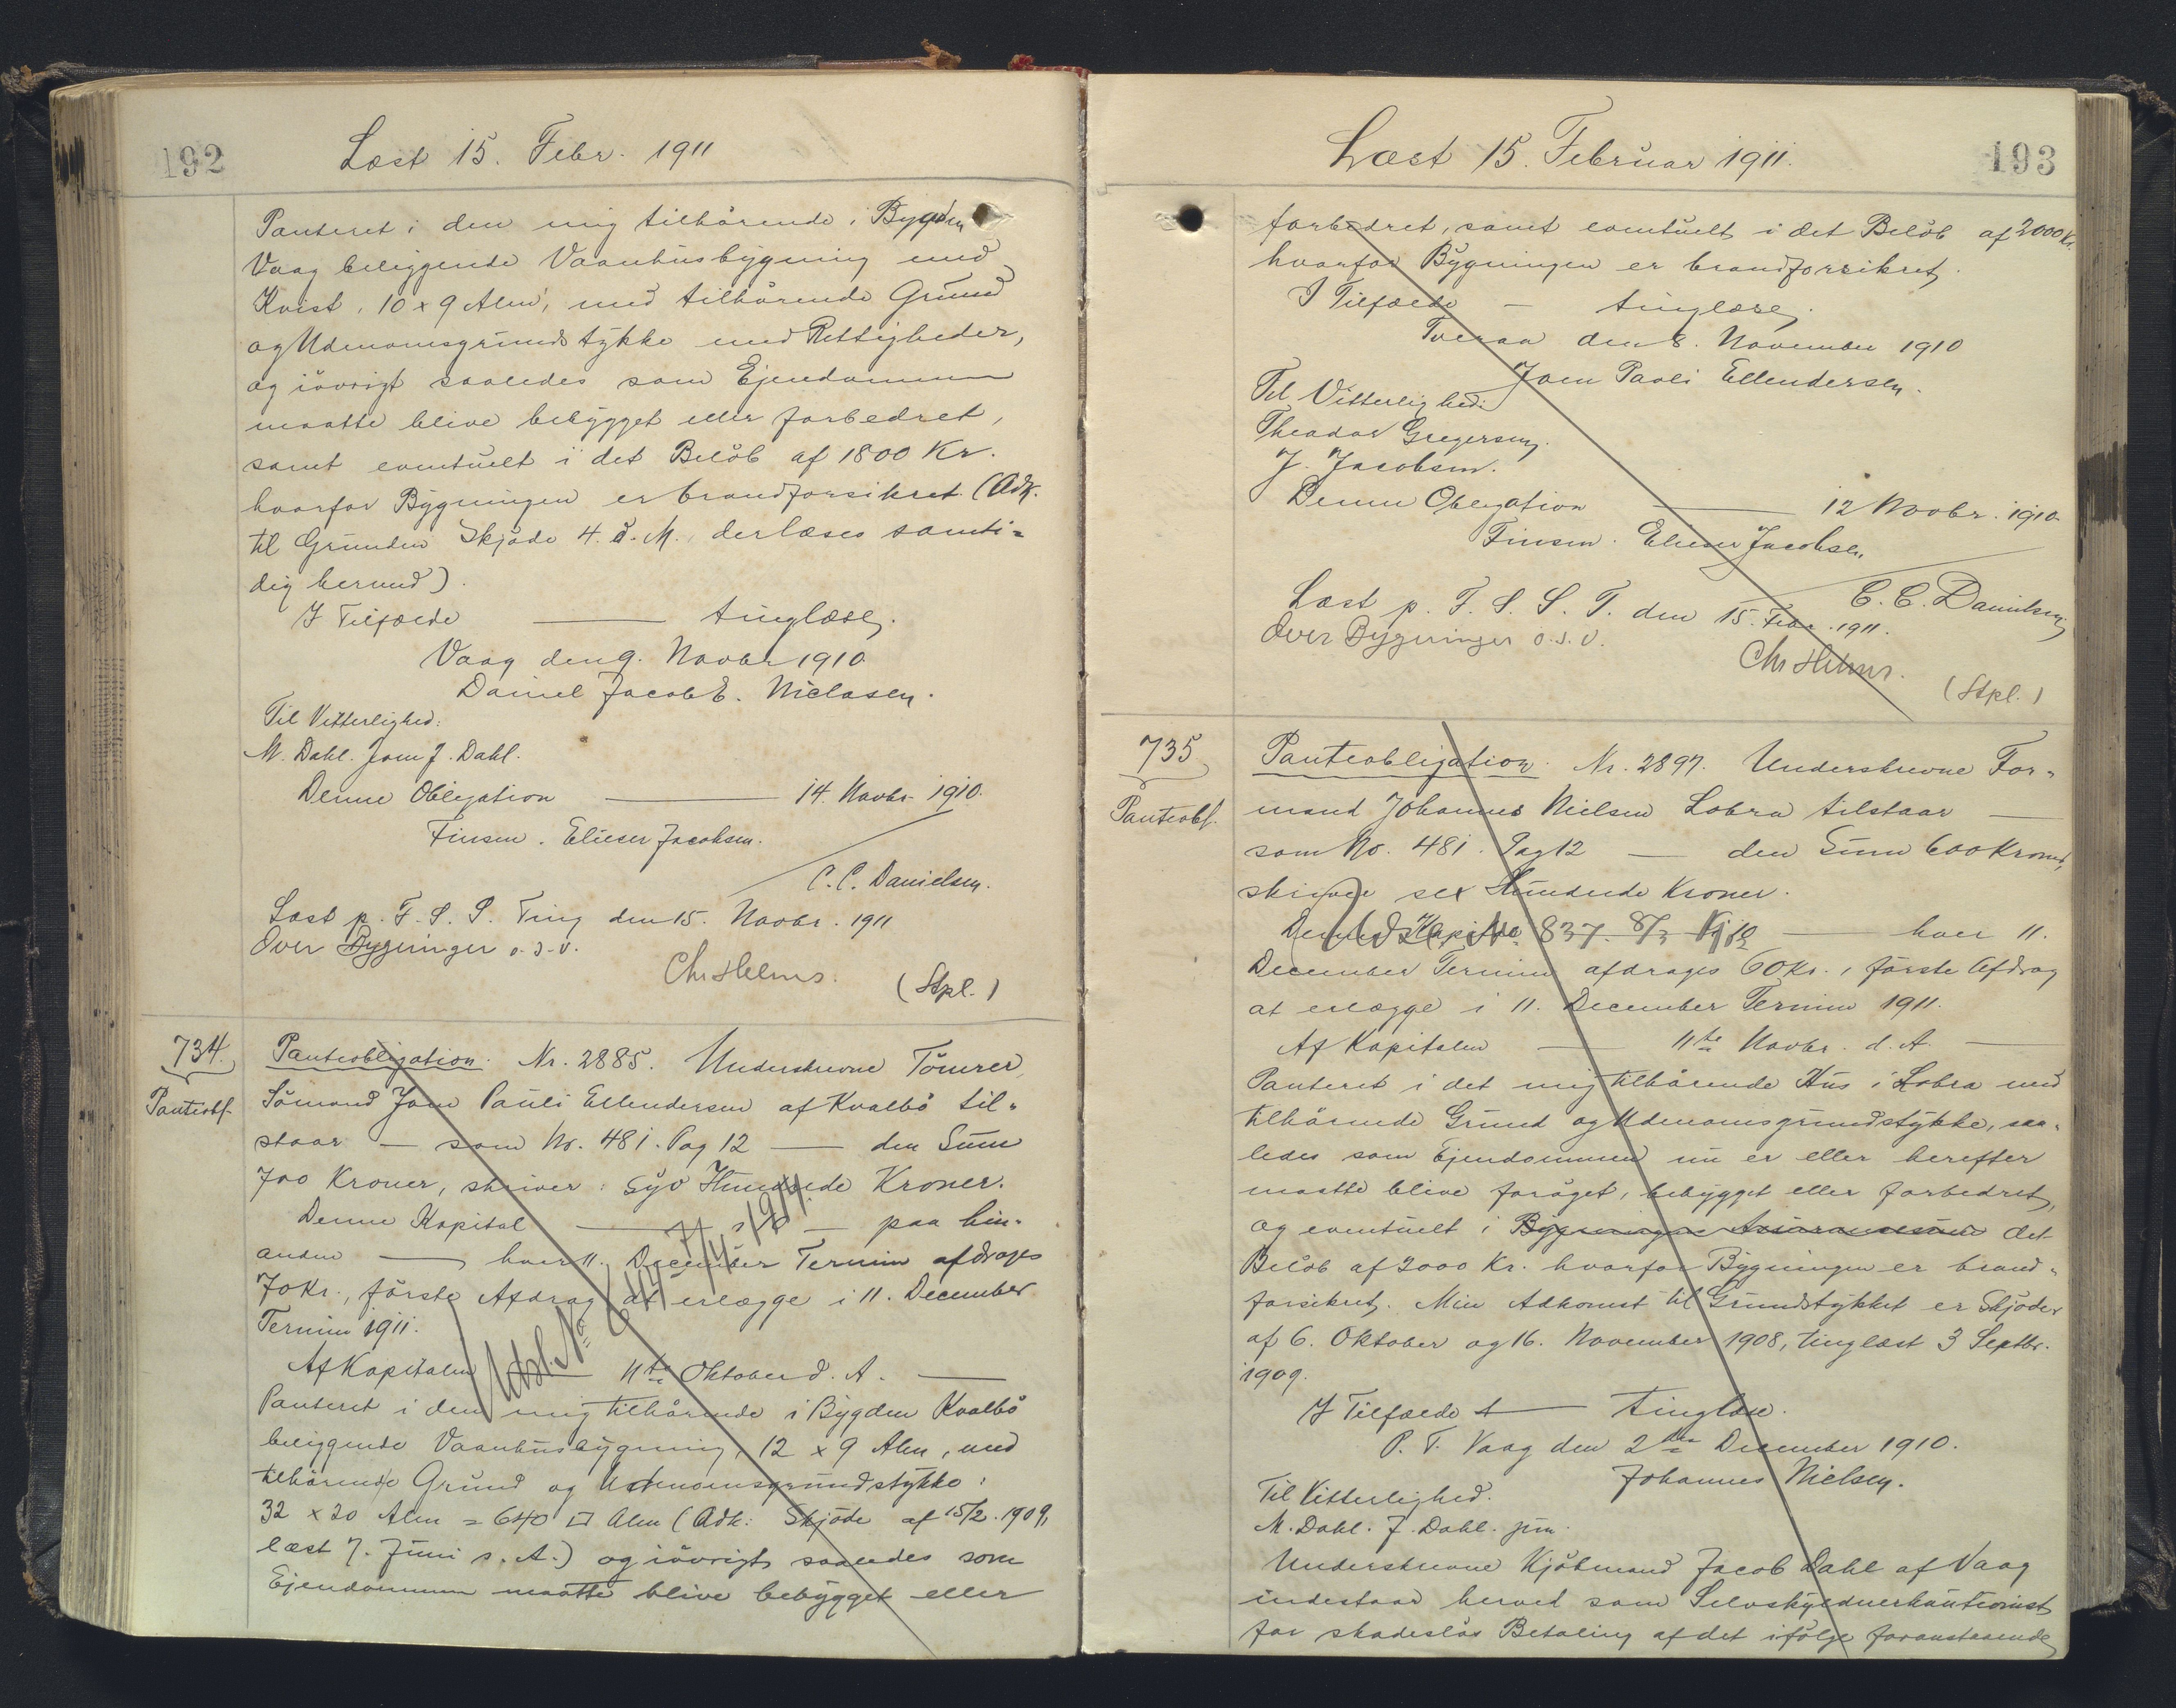 192
Læst 15. Febr. 1911
Panteret i den mig tilhörende i Bygden
Vaag beliggende Vaanhusbygning med
Kvist, 10 x 9 Alen, med tilhörende Grund
og Udenomsgrundstykke med Rettigheder,
og iövrigt saaledes som Ejendommen
maatte blive bebygget eller forbedret,
samt eventuelt i det Belöb af 1800 Kr.
hvorfor Bygningen er brandforsikret. (Adk.
til Grunden Skjöde 4. d. M., der læses samti=
dig hermed).
I Tilfælde — tinglæse.
Vaag den 9. Novbr 1910
Daniel Jacob E. Niclasen.
Til Vitterlighed:
M. Dahl. Joen J. Dahl.
Denne Obligation — 14. Novbr. 1910.
Finsen. Elieser Jacobsen.
C. C. Danielsen.
Læst p. F. S. S. Ting den 15. Novbr. 1911
Över Bygninger o. s. v.
Chr Helms. (Stpl.)
734.
Panteobl.
Panteobligation. Nr. 2885. Underskrevne Tömrer,
Sömand Joen Pauli Ellendersen af Kvalbö til=
staar — som No. 481. Pag 12 — den Sum
700 Kroner, skriver: Syv Hundrede Kroner.
Denne Kapital — paa hin=
anden — hver 11. December Termin afdrages
70 Kr., förste Afdrag at erlægge i 11. December
Termin 1911.
Udsl. No
Af Kapitalen — 11te Oktober d. A. —
Panteret i den mig tilhörende i Bygden Kvalbö
beliggende Vaanhusbygning, 12 x 9 Alen, med
tilhörende Grund og Udenomsgrundstykke:
32 x 20 Alen = 640 □ Alen (Adk: Skjöde af 15/2. 1909,
læst 7. Juni s. A.) og iövrigt saaledes som
Ejendommen maatte blive bebygget eller
Læst 15. Februar 1911.
193
forbedret, samt eventuelt i det Belöb af 2000 Kr.
hvorfor Bygningen er brandforsikret.
I Tilfælde — tinglæse.
Tveraa den 8. November 1910
Joen Pauli Ellendersen.
Til Vitterlighed:
Theodor Gregersen.
J. Jacobsen.
Denne Obligation — 12 Novbr. 1910.
Finsen. Elieser Jacobsen
C. C. Danielsen
Læst p. F. S. S. T. den 15. Febr. 1911.
Over Bygninger o. s. v.
Chr Helms. (Stpl.)
735
Panteobl.
Panteobligation. Nr. 2897. Underskrevne For=
mand Johannes Nielsen Lobra tilstaar —
som No. 481. Pag 12 — den Sum 600 Kroner,
skriver sex Hundrede Kroner.
Denne Kapital — hver 11.
Udsl. No 837. 8/3
December Termin afdrages 60 Kr., förste Afdrag
at erlægge i 11. December Termin 1911.
Af Kapitalen — 11te Novbr. d. A. —
Panteret i det mig tilhörende Hus i Lobra med
tilhörende Grund og Udenomsgrundstykke, saa=
ledes som Ejendommen nu er eller herefter
maatte blive foröget, bebygget eller forbedret,
og eventuelt i Bygningens Assurancesum det
Belöb af 2000 Kr. hvorfor Bygningen er brand=
forsikret. Min Adkomst til Grundstykket er Skjöder
af 6. Oktober og 16. November 1908, tinglæst 3 Septbr.
1909.
I Tilfælde — tinglæse.
P. T. Vaag den 2den December 1910.
Johannes Nielsen.
Til Vitterlighed.
M. Dahl. J. Dahl. jun.
Underskrevne Kjöbmand Jacob Dahl af Vaag
indestaar herved som Selvskyldnerkautionist
for skadeslös Betaling af det ifölge foranstaaende